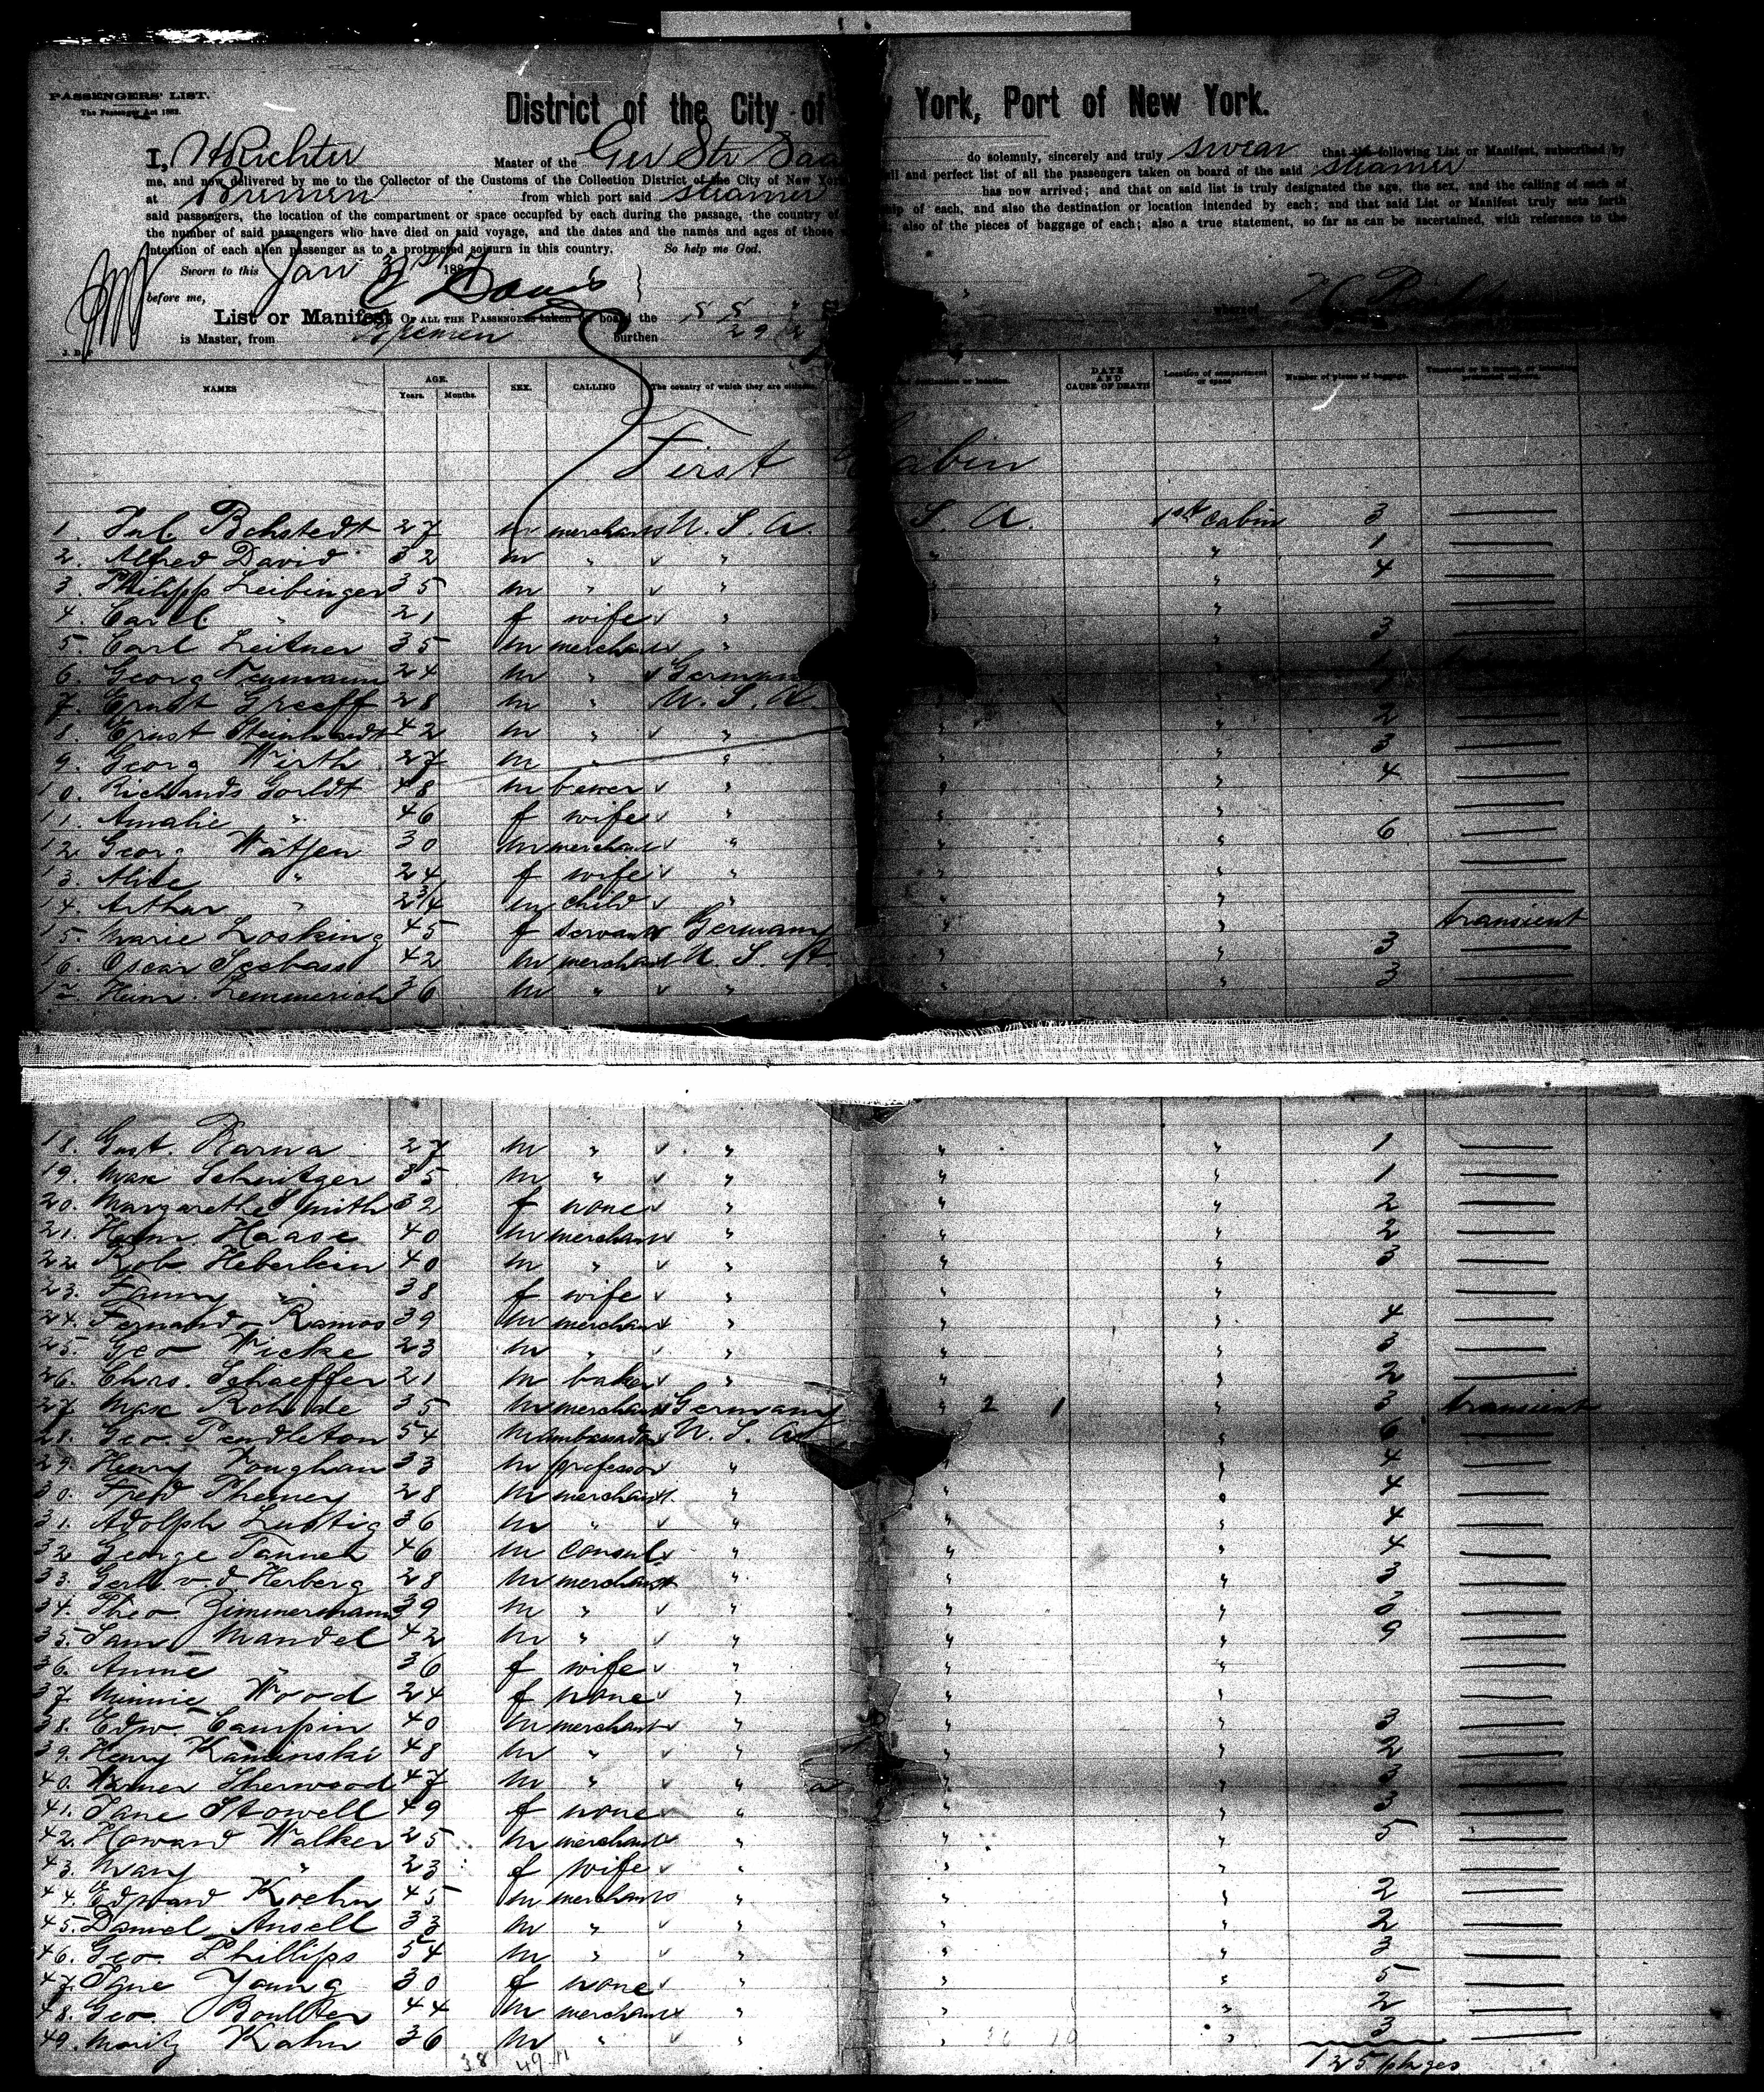 PASSENGERS' LIST.
The Passenger Act 1882.
District of the City of York, Port of New York.
I, H Richter Master of the Ger Str do solemnly, sincerely and truly swear that the following List or Manifest, subscribed by
me, and now delivered by me to the Collector of the Customs of the Collection District of the City of New York and perfect list of all the passengers taken on board of the said steamer
at Bremen from which port said steamer has now arrived; and that on said list is truly designated the age, the sex, and the calling of each of
said passengers, the location of the compartment or space occupied by each during the passage, the country of of each, and also the destination or location intended by each; and that said List or Manifest truly sets forth
the number of said passengers who have died on said voyage, and the dates and the names and ages of those also of the pieces of baggage of each; also a true statement, so far as can be ascertained, with reference to the
intention of each alien passenger as to a protracted sojourn in this country. So help me God.
Sworn to this Jan 31st 188
before me, Davis
List or Manifest OF ALL THE PASSENGERS taken on board the S S
is Master, from Bremen burthen 29
NAMES AGE. Years. Months. SEX. CALLING The country of which they are citizens. destination or location. DATE AND CAUSE OF DEATH Location of compartment or space Number of pieces of baggage.
First Cabin
1. Bohstedt 27 m merchant U. S. A. S. A. 1st Cabin 3 —
2. Alfred David 32 m " " " 1 —
3. Philipp Leibinger 35 m " " " 4 —
4. " 21 f wife " " —
5. Carl Leitner 35 m merchant " " 3 —
6. Georg Neumann 24 m " German
7. Ernst Greeff 28 m " U. S. A. " " 1 —
8. Ernst Steinhardt 42 m " " " " 2 —
9. Georg Wirth 27 m " " " " 3 —
10. 48 m " " " 4 —
11. Amalie " 46 f wife " " " —
12. Georg Watjen 30 m merchant " " " 6 —
13. Alide " 24 f wife " " " —
14. Arthur " 2 3/4 m child " " —
15. Marie Losking 45 f servant Germany " " transient
16. Oscar Seebass 42 m merchant U. S. A. " " 3 —
17. Heinr. Lemmerich 36 m " " " " 3 —
18. Gust. Barna 27 m " " " " 1 —
19. Max Schnitger 35 m " " " " 1 —
20. Margarethe Smith 32 f none " " " 2 —
21. Haase 40 m merchant " " " 2 —
22. Rob. Heberlein 40 m " " " " 3 —
23. Fanny " 38 f wife " " " —
24. Fernando Ramos 39 m merchant " " " 4 —
25. Geo Wicke 23 m " " " " 3 —
26. Chas. Schaeffer 21 m baker " " " 2 —
27. Max Rohde 35 m merchant Germany " 2 1 " 3 transient
28. Geo. Pendleton 54 m ambassador U. S. A. " " 6 —
29. Henry Voughan 33 m professor " " " 4 —
30. Fred 28 m merchant " " " 4 —
31. Adolph Lustig 36 m " " " " 4 —
32. George Tanner 46 m consul " " " 4 —
33. v. d Herberg 28 m merchant " " " 3 —
34. Theo Zimmermann 39 m " " " " 3 —
35. Sam Mandel 42 m " " " " 9 —
36. Annie " 36 f wife " " " —
37. Minnie Wood 24 f none " " " —
38. Edw Campin 40 m merchant " " " 3 —
39. Henry Kaminski 48 m " " " " 2 —
40. Warner Sherwood 47 m " " " " 3 —
41. Jane Stowell 49 f none " " " 3 —
42. Howard Walker 25 m merchant " " " 5 —
43. Mary " 23 f wife " " " —
44. Edward Koehn 45 m merchant " " " 2 —
45. Daniel Ansell 33 m " " " " 2 —
46. Geo. Phillips 54 m " " " " 3 —
47. Jane Young 30 f none " " " 5 —
48. Geo. Boulter 44 m merchant " " " 2 —
49. Moritz Kahn 36 m " " " " 3 —
38 49 11 125 pkges